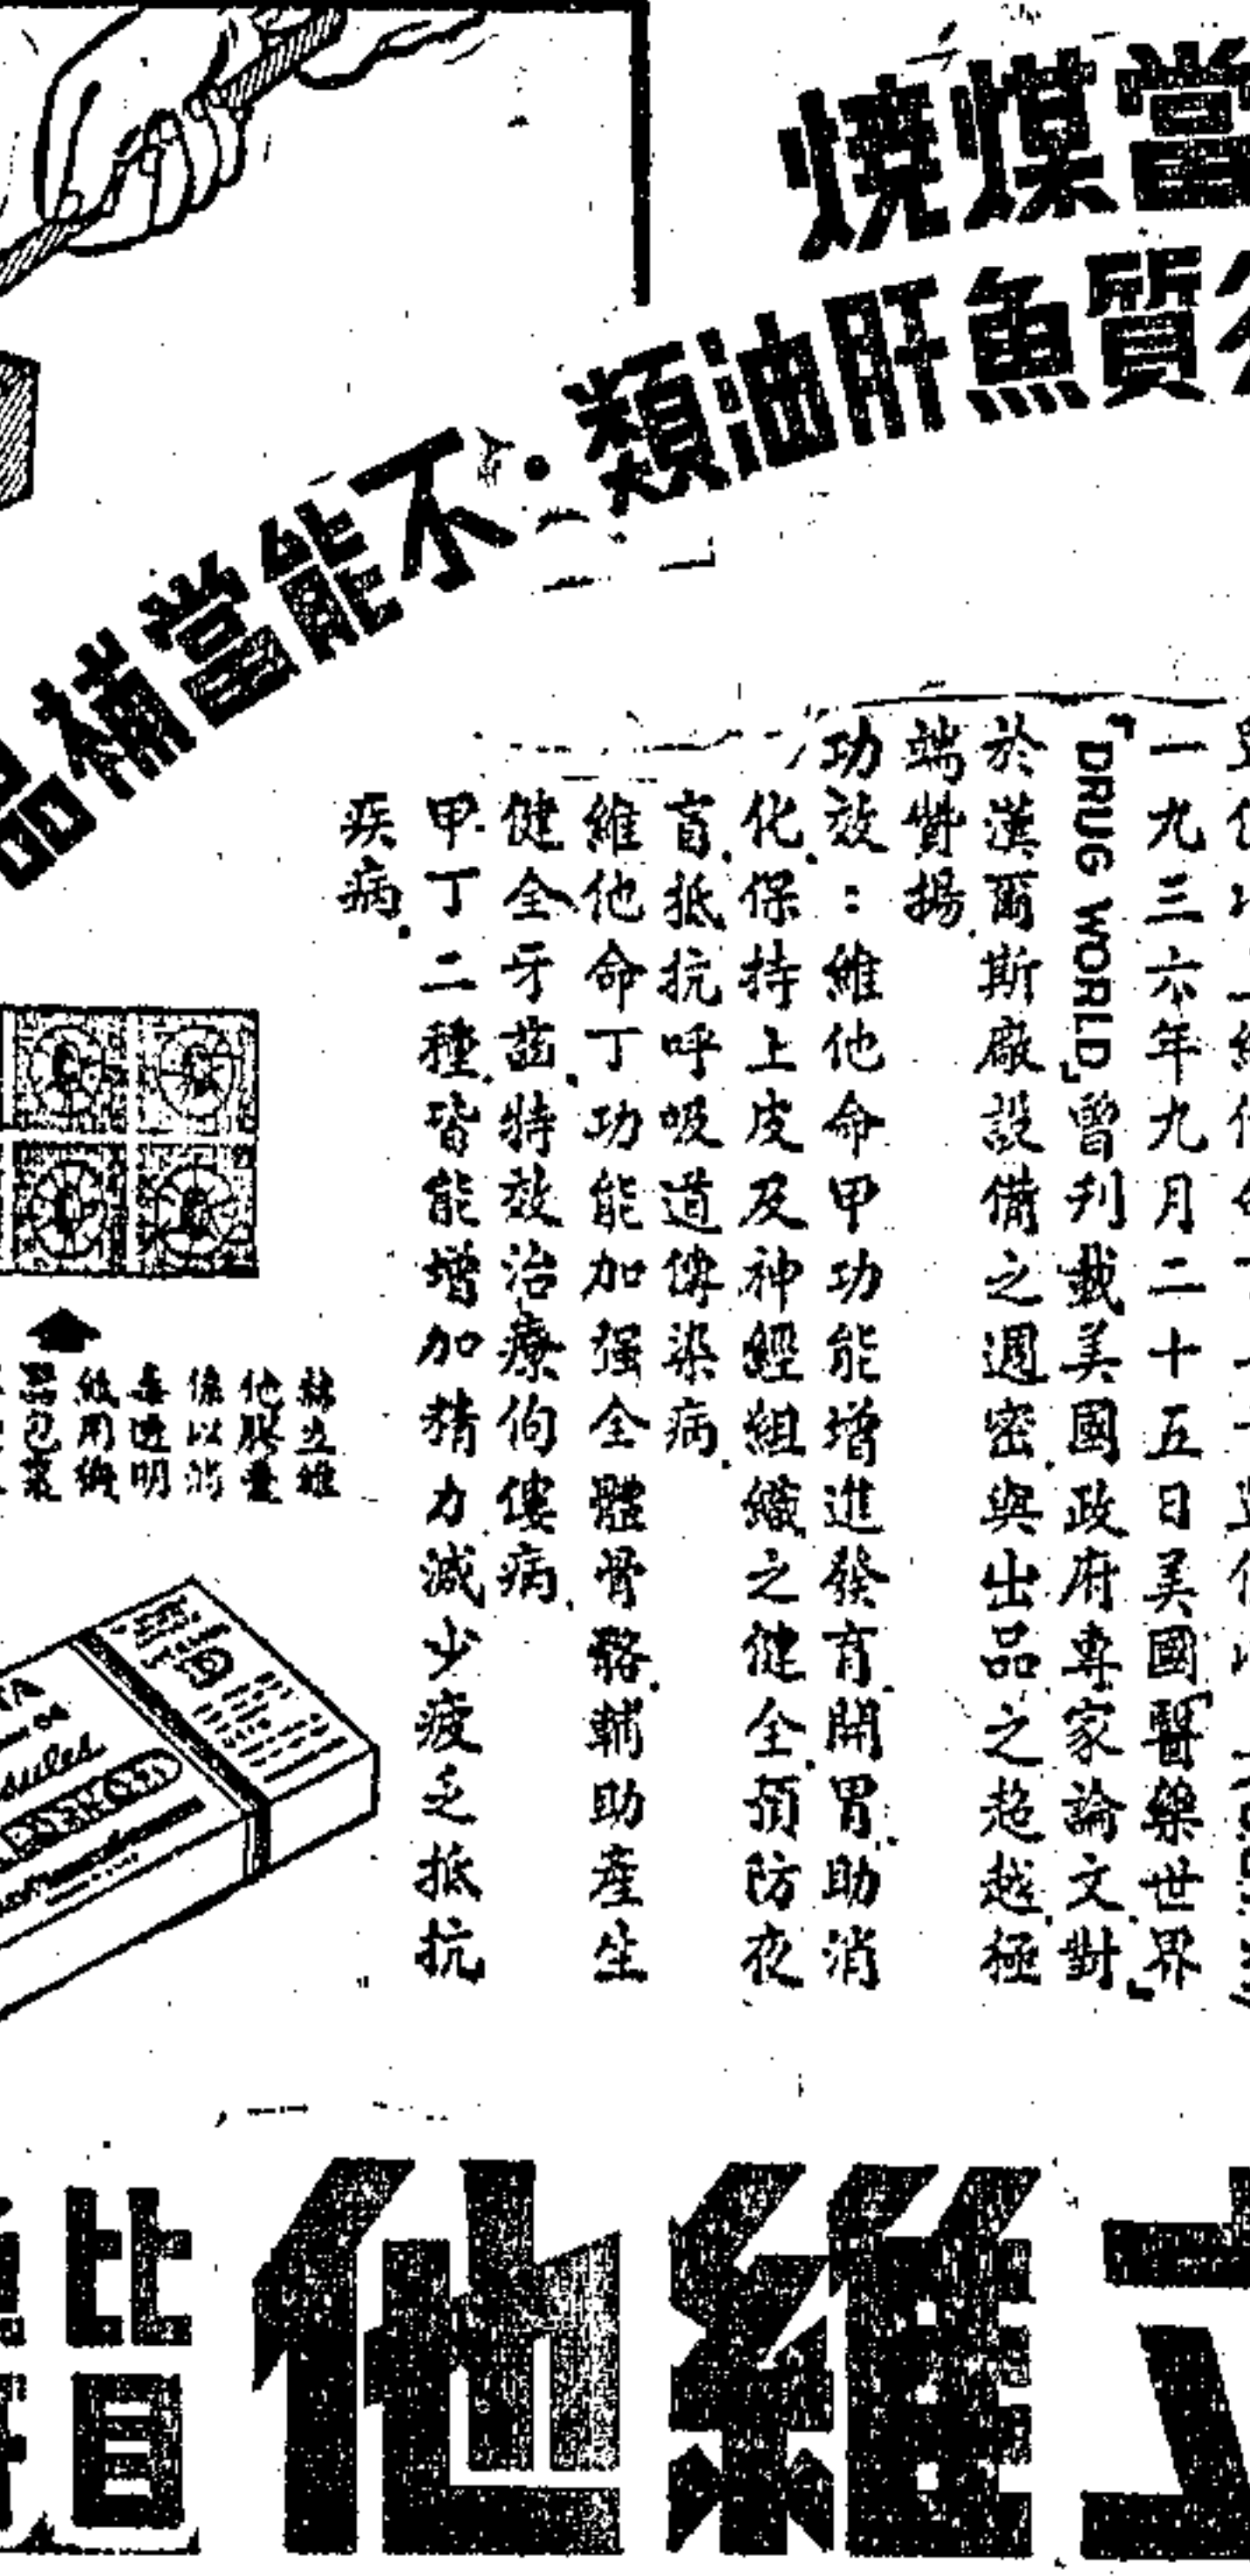 當煤燒
質魚肝油類·不能當補品
一九三六年九月二十五日美國「醫藥世界」
「DRUG WORLD」曾刋載美國政府專家論文.對
於漢爾斯廠設備之週密.與出品之超越.極
端贊揚.
功效：維他命甲功能增進發育.開胃.助消
化.保持上皮及神經組織之健全.預防夜
盲.抵抗呼吸道傳染病.
維他命丁功能加强全體骨骼.輔助產生
健全牙齒.特效治療佝僂病.
甲丁二種.皆能增加精力.減少疲乏抵抗
疾病.
維
他膠囊
係以消
毒透明
紙用機
器包裹
立維他